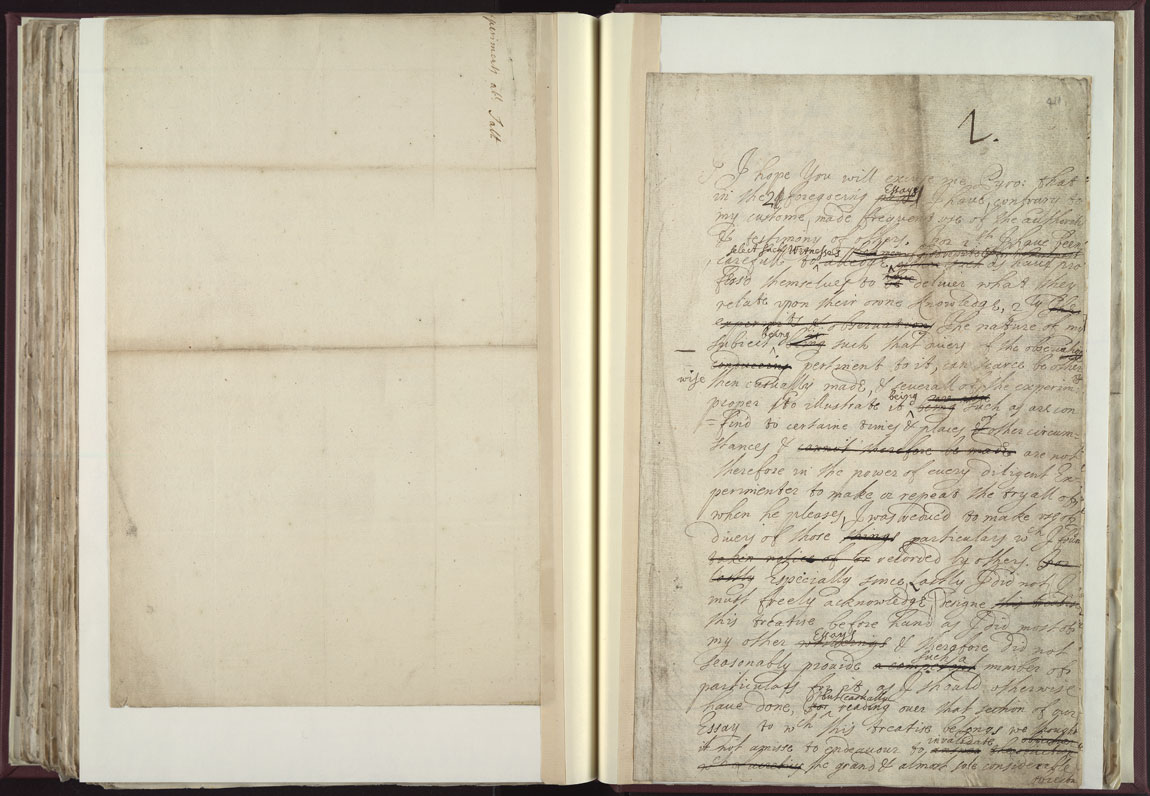 periments abt Salt
2.
I hope You will excuse me Pyro: that
in the 2 foregoeing Essays I have, contrary to
my custome, made frequent use of the authority
& testimony of others. For 1st I have been
select such Witnesses
carefull to as have pro
fess'd themselves to deliver what they
relate upon their owne knowledge, 2ly the
experimts & observations The nature of my
subject being such that divers of the observations
conduceing pertinent to it, can scarce be other
wise then casually made, & severall of the experimts
proper to illustrate it being such as are con
=find to certaine times & places & other circum-
stances & cannot therefore be made are not
therefore in the power of every diligent Ex
perimenter to make or repeat the tryall of
when he pleases, I was reduc'd to make use of
divers of those things particulars wch I
taken notice of or recorded by others. For
lastly Especially since, Lastly I did not, I
must freely acknowledge, designe this treatise
this treatise before hand as I did most of
my other writeings Essays & therefore did not
seasonably provide a competent such a number of
particulars for it, as I should otherwise
have done, for but casually reading over that section of our
Essay to wch this treatise belongs we thought
it not amisse to endeavour to invalidate
the grand & almost sole considerable